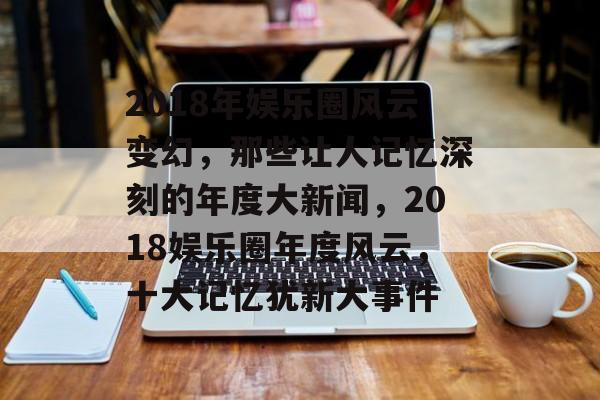 2018年娱乐圈风云
变幻，那些让人记忆深
刻的年度大新闻，20
18娱乐圈年度风云，
十大记忆犹新大事件